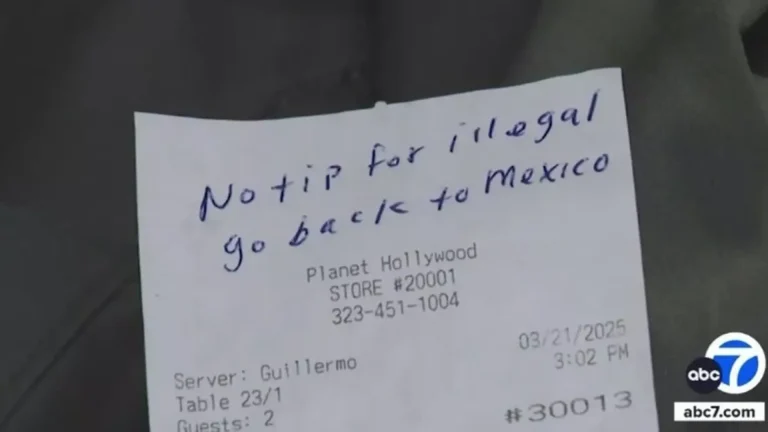 No tip for illegal
go back to Mexico
Planet Hollywood
STORE #20001
323-451-1004
03/21/2025
3:02 PM
Server: Guillermo
Table 23/1
Guests: 2
#30013
abc 7
abc7.com